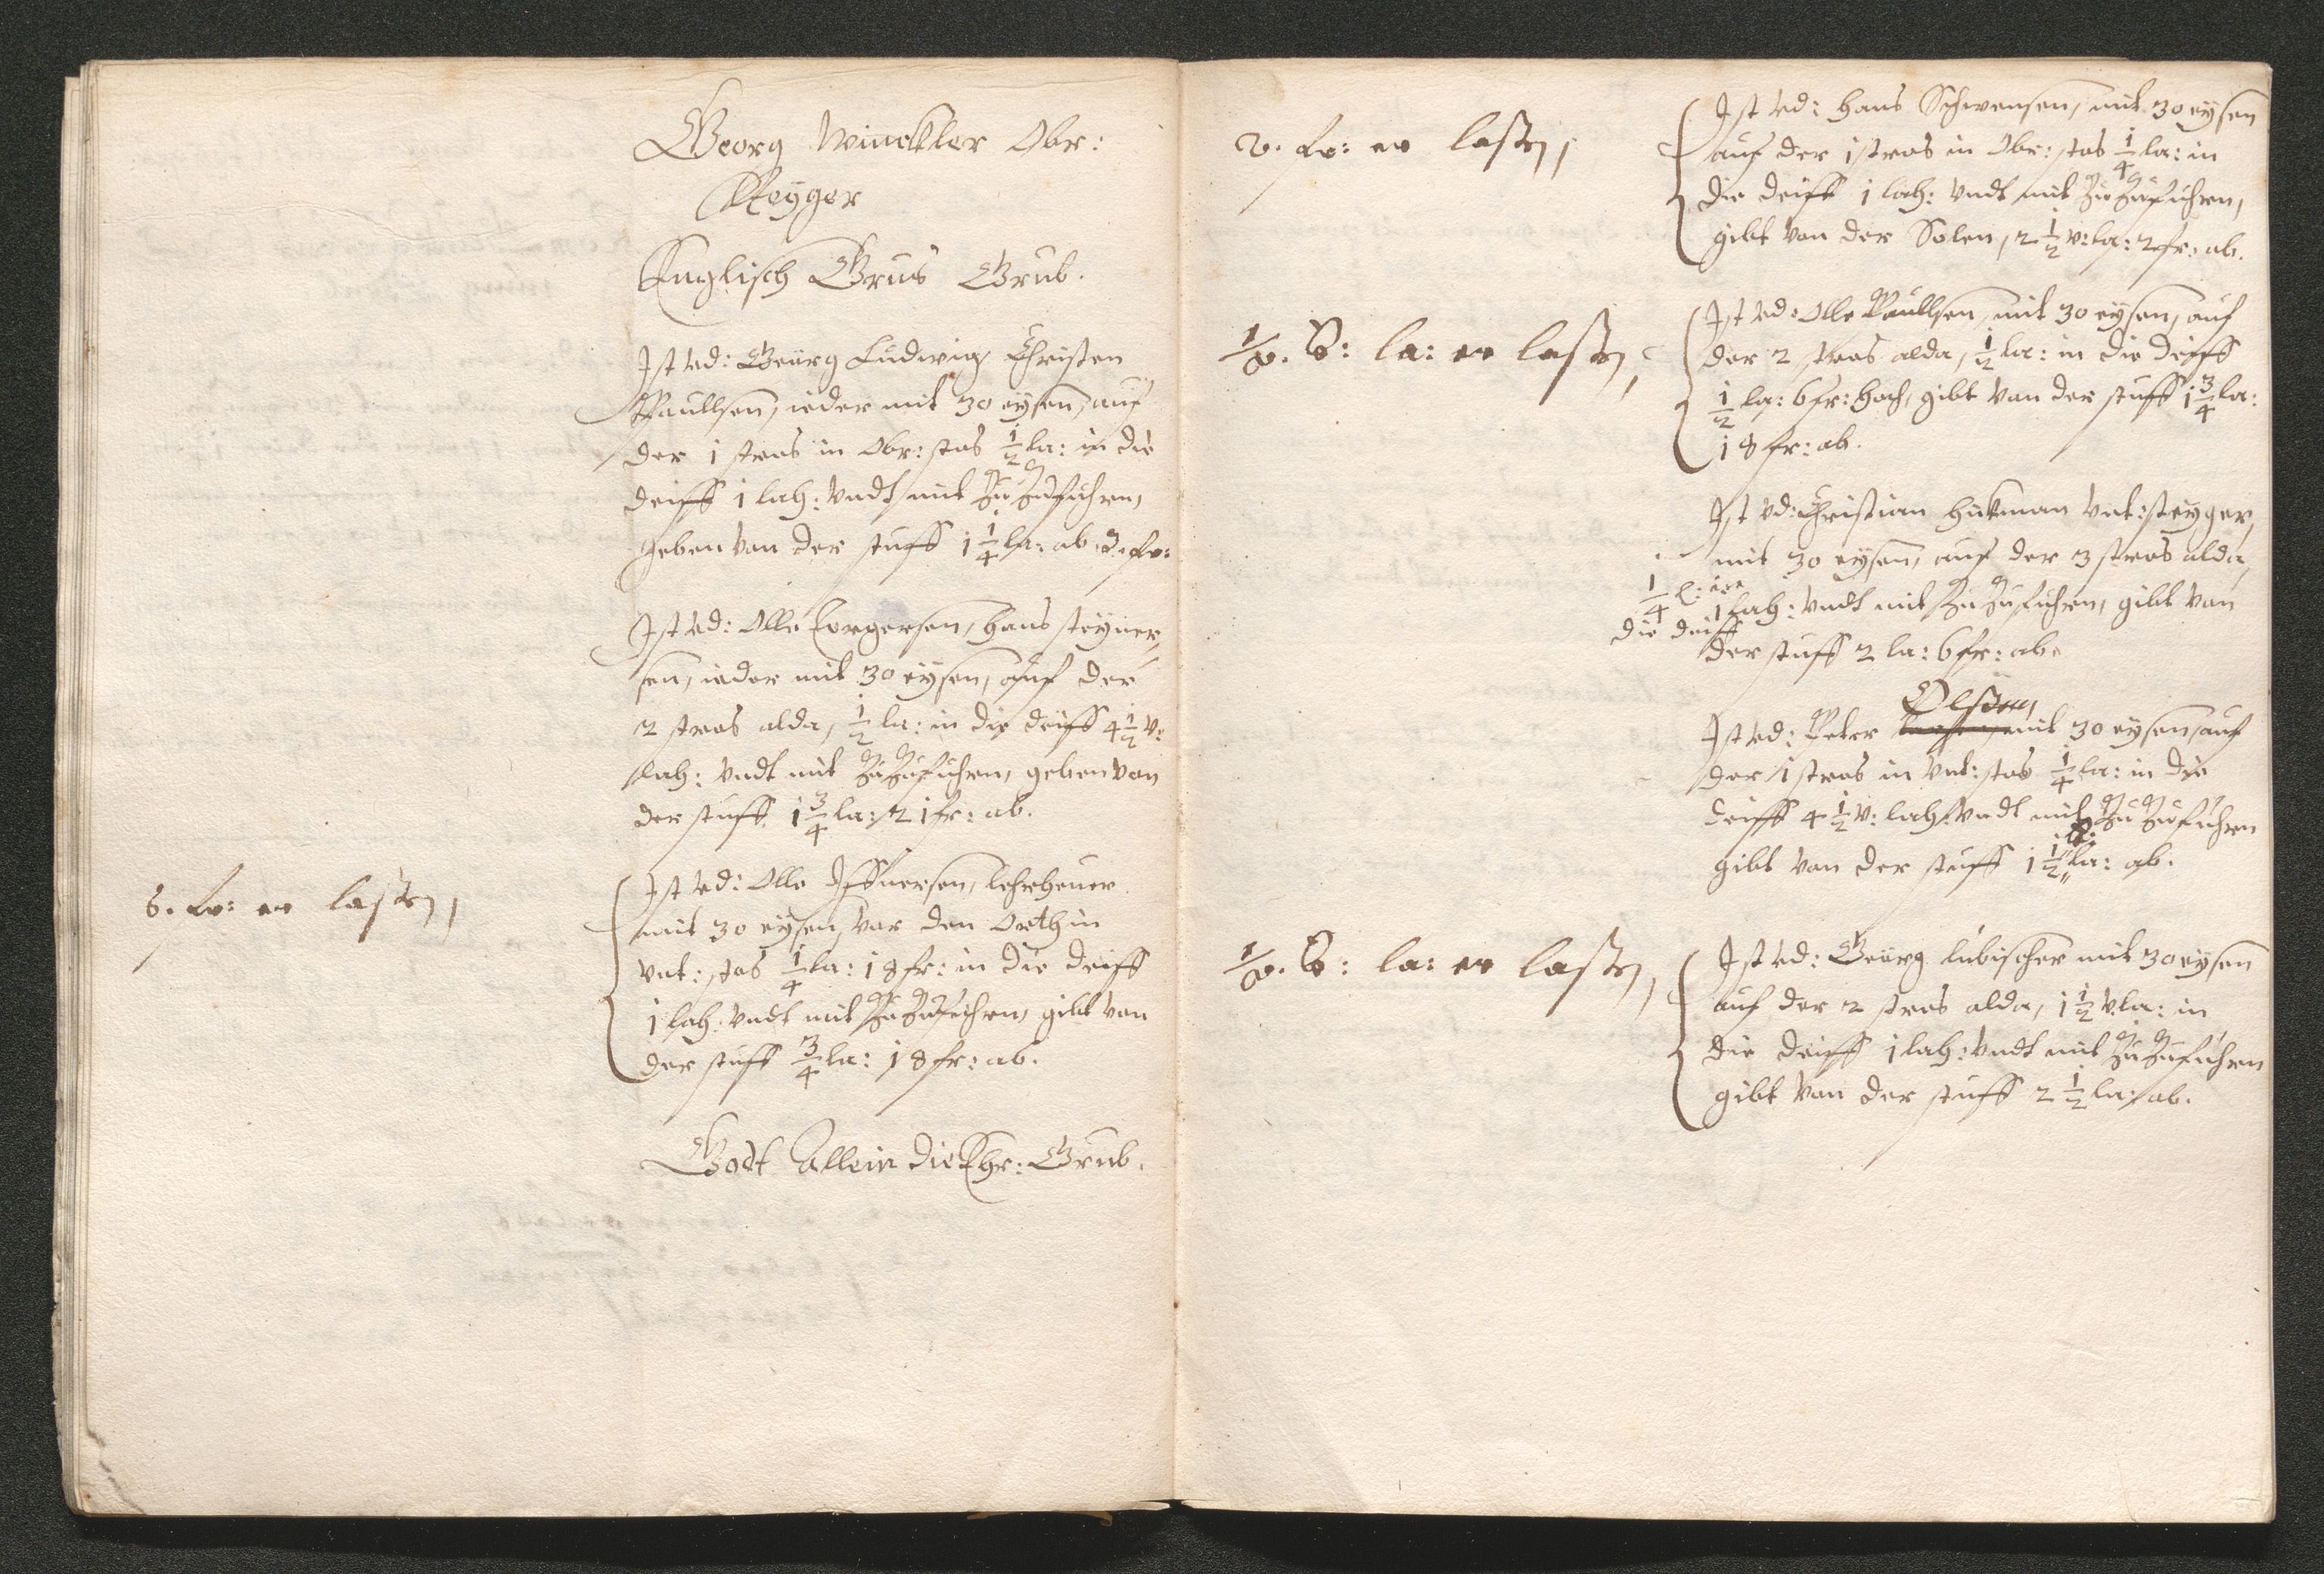 Georg Winckler Obr:
Steyger
Englisch Grus Grub.
Ist vd: Geürg Ludwig Christen
Paullsen, ieder mit 30 eysen, auf
der 1 stros in Obr: stos 1/2 la: in die
deiff 1 lah: vndt mit Zu Zufuhren,
geben von der stuff 1 1/4 la: ab 3. fr:
Ist vd: Olle Torgersen, Hans steyner,,
sen, ieder mit 30 eysen, auf der
2 stros alda, 1/2 la: in die deiff 4 1/2 v:
lah: vndt mit Zu Zufuhren, geben von
der stuff 1 3/4 la: 21 fr: ab.
6. fr: er lassen,
Ist vd: Olle Iffuersen, lehrheuer
mit 30 eysen, vor den Orth in
vnt: stos 1/4 la: 18 fr: in die deiff
1 lah: vndt mit Zu Zufuhren, gibt von
der stuff 3/4 la: 18 fr: ab.
Godt Allein die Ehr: Grub.
2. fr: er lassen,
Ist vd: Hans Schwensen, mit 30 eysen
auf der 1 stros in Obr: stos 1/4 la: in
die deiff 1 lah: vndt mit Zu Zufuhren,
gibt von der Solen, 2 1/2 v: la: 2 fr: ab.
la: er lassen,
Ist vd: Olle Paullsen, mit 30 eysen, auf
der 2 stros alda, 1/2 la: in die deiff
1/2 la: 6 fr: hoch, gibt von der stuff 1 3/4 la:
18 fr: ab.
Ist vd: Christian Hutman vnt: steyger,
mit 30 eysen, auf der 3 stros alda,
1/4 l: in
die deiff
1 lah: vndt mit Zu Zufuhren, gibt von
der stuff 2 la: 6 fr: ab.
Olssen,
Ist vd: Peter mit 30 eysen, auf
der 1 stros in vnt: stos 1/4 la: in die
deiff 4 1/2 v: lah: vndt mit Zu Zufuhren
gibt von der stuff 1 1/2 la: ab.
la: er lassen,
Ist vd: Geürg lübischer mit 30 eysen
auf der 2 stros alda, 1 1/2 v: la: in
die deiff 1 lah: vndt mit Zu Zufuhren
gibt von der stuff 2 1/2 la: ab.